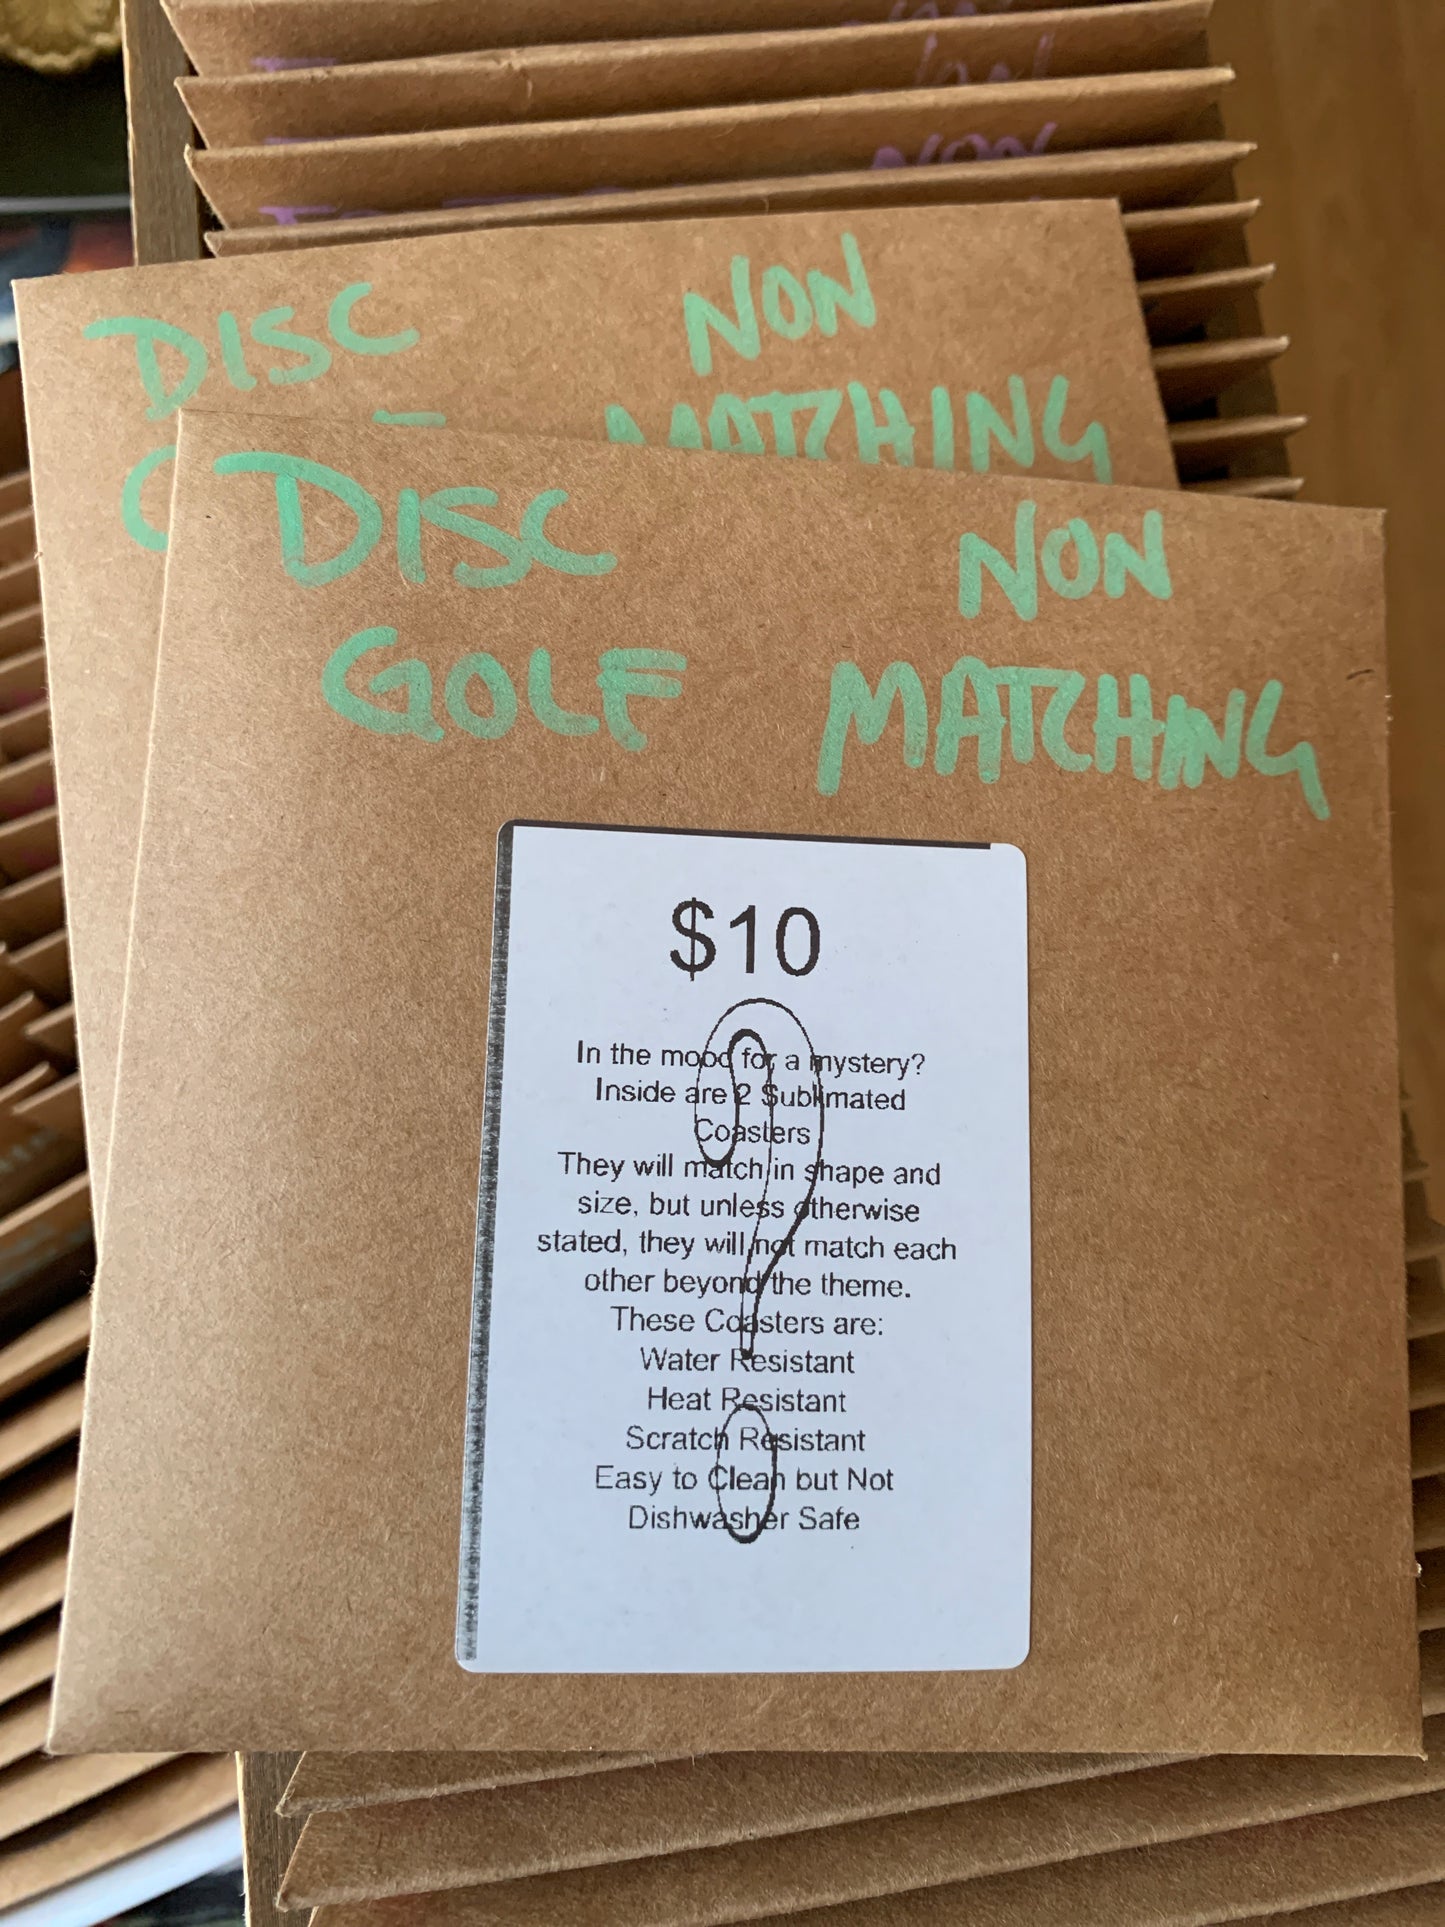 NON
NON
DISC
NON
MATCHING
DISC
NON
GOLF
MATCHING
$10
In the mood for a mystery?
Inside are 2 Sublimated
Coasters
They will match in shape and
size, but unless otherwise
stated, they will not match each
other beyond the theme.
These Coasters are:
Water Resistant
Heat Resistant
Scratch Resistant
Easy to Clean but Not
Dishwasher Safe